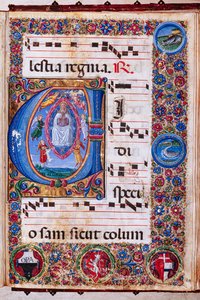 lestia regnia. R.
V
I
di
speci
osam sicut colum